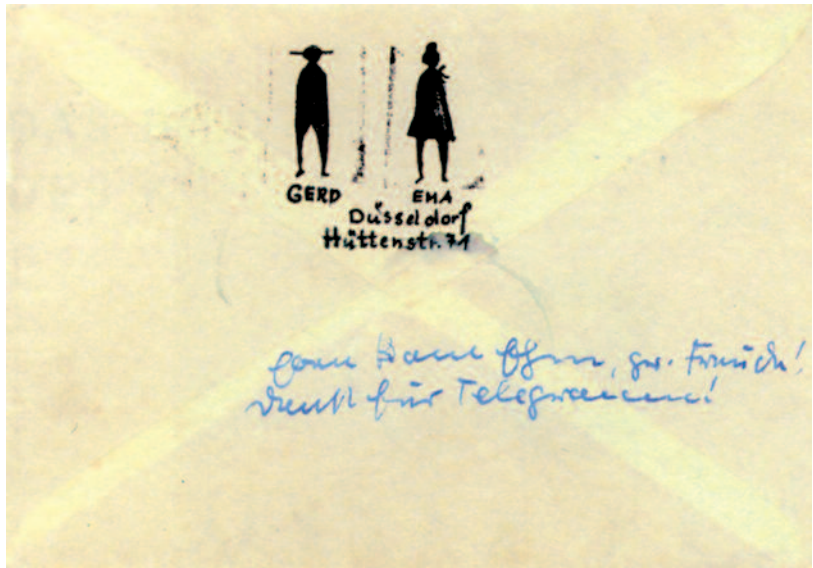 GERD EMA
Düsseldorf
Hüttenstr. 71
gr. Freude!
Dank für Telegramm!